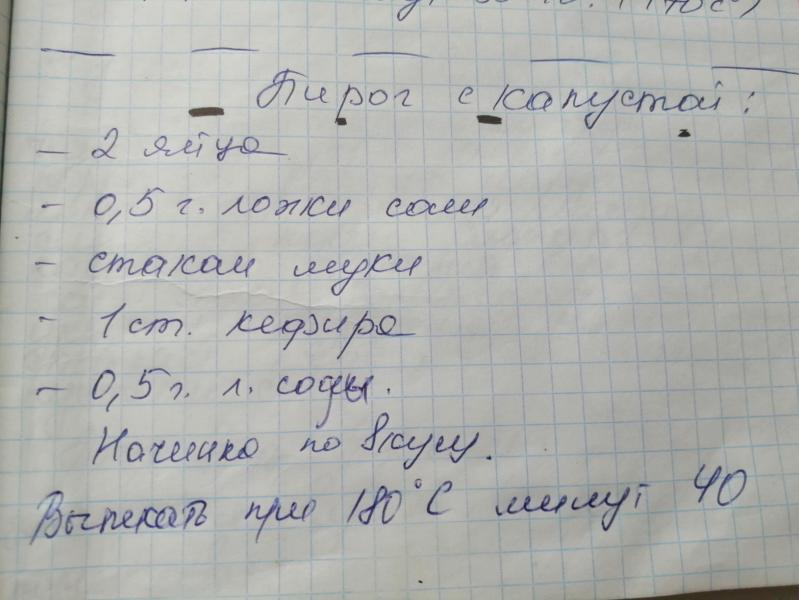 (170 с)
Пирог с капустой:
- 2 яйца
- 0,5 г. ложки соли
- стакан муки
- 1 ст. кефира
- 0,5 г. л. соды.
Начинка по вкусу.
Выпекать при 180°С минут 40